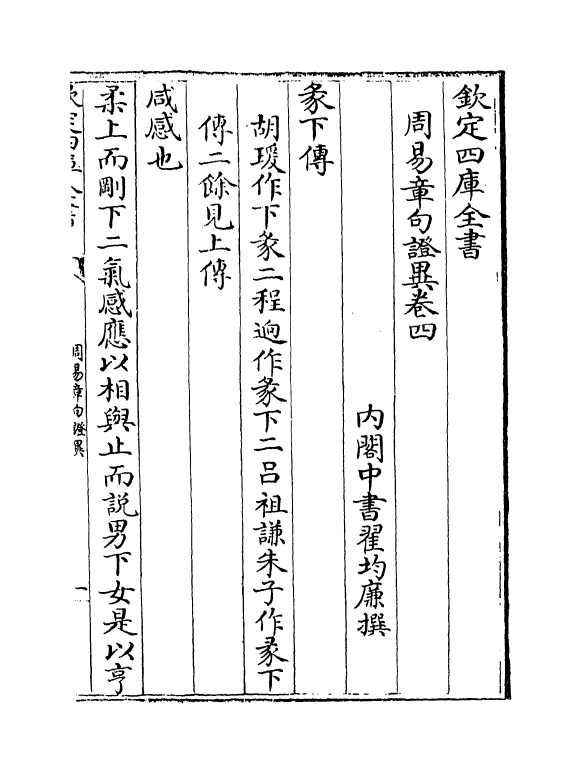 欽定四庫全書
周易章句證異卷四
内閣中書翟均廉撰
彖下傳
胡瑗作下彖二程迥作彖下二吕祖謙朱子作彖下
傳二餘見上傳
咸感也
柔上而剛下二氣感應以相與止而説男下女是以亨
周易章句證異
一